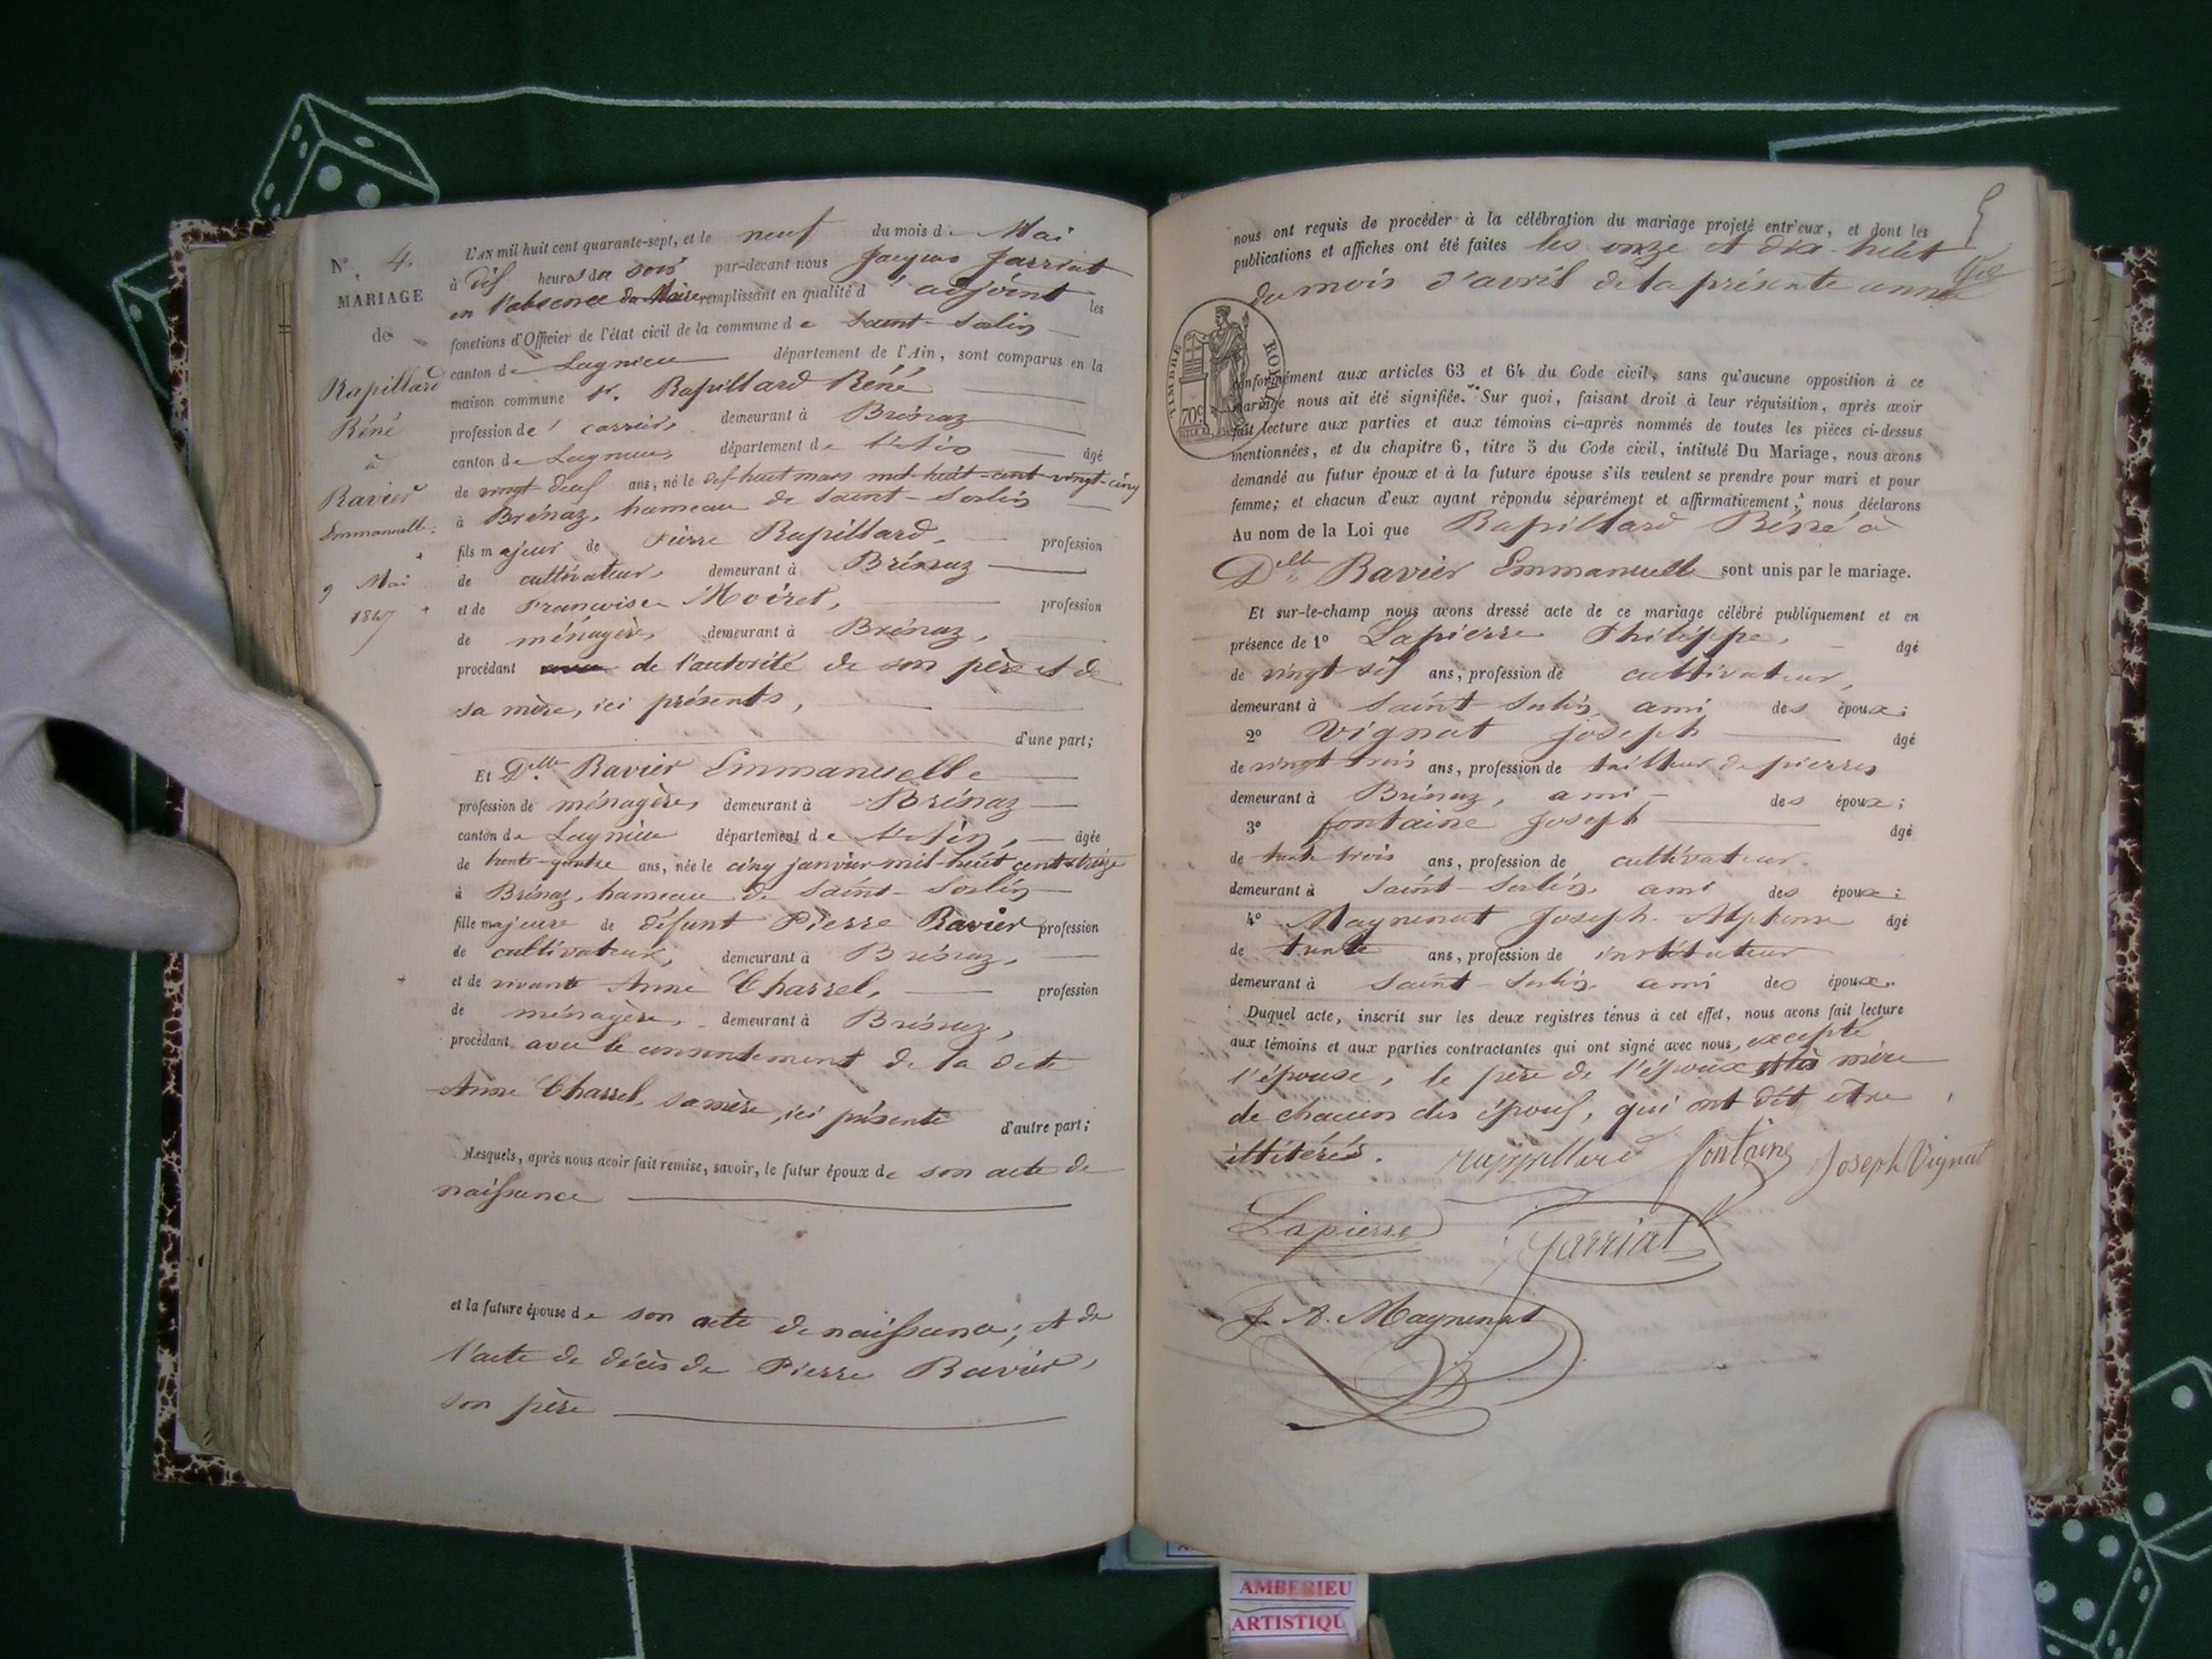 N°. 4.
MARIAGE
de
Rapillard
Réné
à
Ravier
Emmanuelle.
9 Mai
1847
L'AN mil huit cent quarante-sept, et le neuf du mois de Mai
à dix heures du soir par-devant nous Jacques Jarriat
en l'absence du Maire remplissant en qualité d'adjoint les
fonctions d'Officier de l'état civil de la commune de Saint-Sorlin
canton de Lagnieu département de l'Ain, sont comparus en la
maison commune Sr. Rapillard Réné
profession de carrier, demeurant à Brénaz
canton de Lagnieu, département de l'Ain âgé
de vingt-deux ans, né le dix-huit mars mil-huit-cent-vingt-cinq
à Brénaz, hameau de Saint-Sorlin
fils majeur de Pierre Rapillard, profession
de cultivateur, demeurant à Brénaz
et de Francoise Moiret, profession
de ménagère, demeurant à Brénaz,
procédant de l'autorité de son père et de
sa mère, ici présents,
d'une part;
Et Delle Ravier Emmanuelle
profession de ménagère, demeurant à Brénaz
canton de Lagnieu département de l'Ain, âgée
de trente-quatre ans, née le cinq janvier mil-huit cent-treize
à Brénaz, hameau de Saint-Sorlin
fille majeure de défunt Pierre Ravier profession
de cultivateur, demeurant à Brénaz,
et de vivante Anne Charrel, profession
de ménagère, demeurant à Brénaz,
procédant avec le consentement de la dite
Anne Charrel, sa mère, ici présente d'autre part;
Lesquels, après nous avoir fait remise, savoir, le futur époux de son acte de
naissance
et la future épouse de son acte de naissance; et de
l'acte de décès de Pierre Ravier,
son père
5
nous ont requis de procéder à la célébration du mariage projeté entr'eux, et dont les
publications et affiches ont été faites les onze et dix-huit
du mois d'avril de la présente année
TIMBRE ROYAL
70c
conformément aux articles 63 et 64 du Code civil, sans qu'aucune opposition à ce
mariage nous ait été signifiée. Sur quoi, faisant droit à leur réquisition, après avoir
fait lecture aux parties et aux témoins ci-après nommés de toutes les pièces ci-dessus
mentionnées, et du chapitre 6, titre 5 du Code civil, intitulé Du Mariage, nous avons
demandé au futur époux et à la future épouse s'ils veulent se prendre pour mari et pour
femme; et chacun d'eux ayant répondu séparément et affirmativement, nous déclarons
Au nom de la Loi que Rapillard Réné à
Delle Ravier Emmanuelle sont unis par le mariage.
Et sur-le-champ nous avons dressé acte de ce mariage célébré publiquement et en
présence de 1° Lapierre Philippe, âgé
de vingt-six ans, profession de cultivateur,
demeurant à Saint-Sorlin, ami des époux;
2° Vignat Joseph âgé
de vingt trois ans, profession de tailleur de pierres
demeurant à Brénaz, ami des époux;
3° Fontaine Joseph âgé
de trente trois ans, profession de cultivateur.
demeurant à Saint-Sorlin, ami des époux;
4° Magnenat Joseph-Alphonse âgé
de trente ans, profession de instituteur
demeurant à Saint-Sorlin ami des époux.
Duquel acte, inscrit sur les deux registres tenus à cet effet, nous avons fait lecture
aux témoins et aux parties contractantes qui ont signé avec nous, excepté
l'épouse, le père de l'époux et la mère
de chacun des époux, qui ont dit être
illitérés. rappillard fontaine Joseph Vignat
Lapierre Jarriat
J. A. Magnenat
AMBERIEU
ARTISTIQU